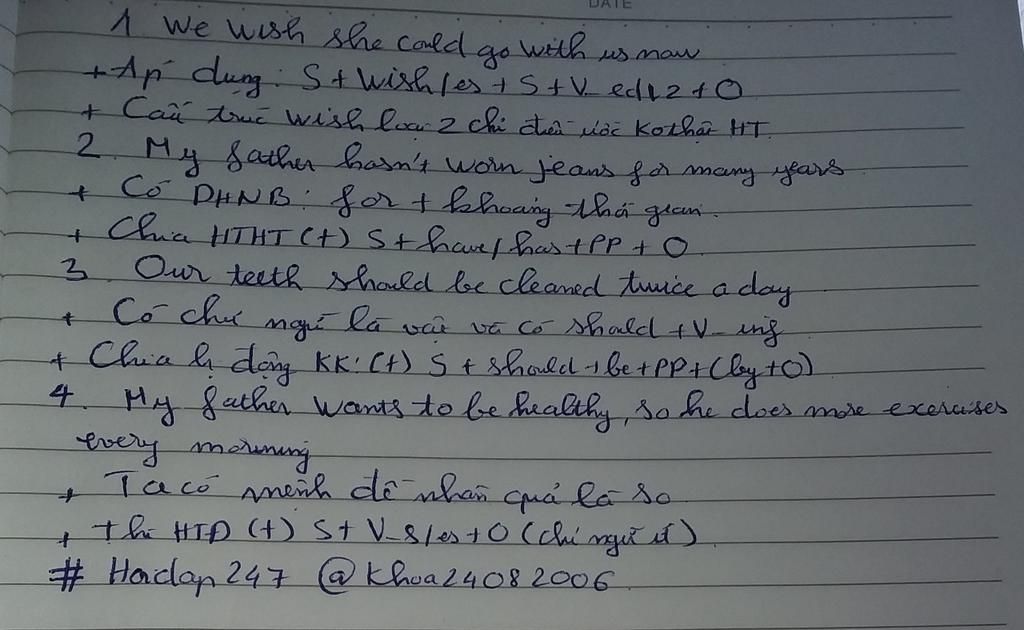 DATE
1 We wish she could go with us now
+ Áp dụng: S + Wish/es + S + V_ed/2 + O
+ Cấu trúc wish loại 2 chỉ điều ước ko thật HT
2. My father hasn't worn jeans for many years
+ Có DHNB: for + khoảng thời gian.
+ Chia HTHT (+) S + have/has + PP + O
3 Our teeth should be cleaned twice a day
+ Có chủ ngữ là vật và có should + V_ing
+ Chia bị động KK: (+) S + should + be + PP + (by + O)
4. My father wants to be healthy, so he does more exercises
every morning
+ Ta có mệnh đề nhân quả là so
+ Thì HTĐ (+) S + V_s/es + O (chủ ngữ ít)
# Hoidap247 @Khoa24082006